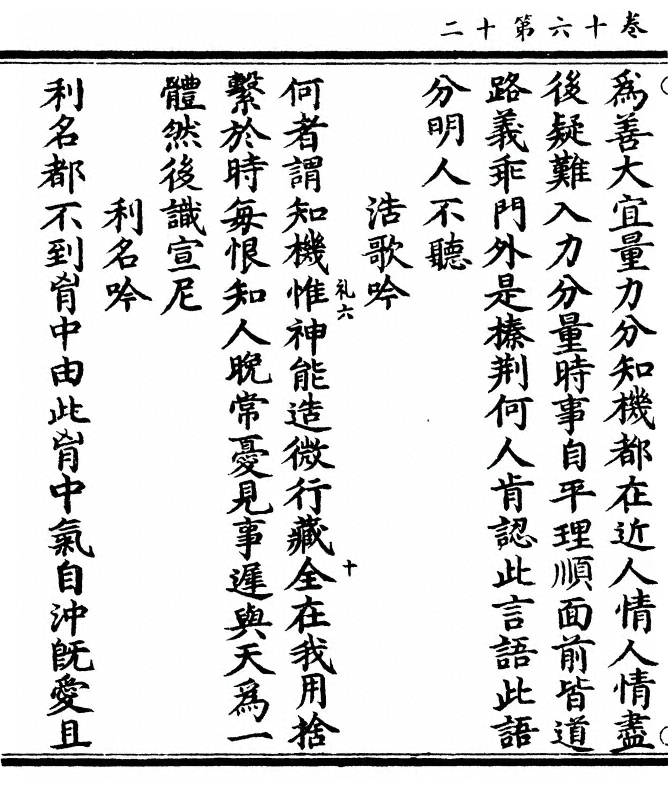 卷十六第十二
爲善大宜量力分知機都在近人情人情盡
後疑難入力分量時事自平理順面前皆道
路義乖門外是榛荆何人肯認此言語此語
分明人不聽
浩歌吟
何者謂知機惟神能造微行藏全在我用捨
礼六
十
繫於時每恨知人晩常憂見事遲與天爲一
體然後識宣尼
利名吟
利名都不到胷中由此胷中氣自沖旣愛且